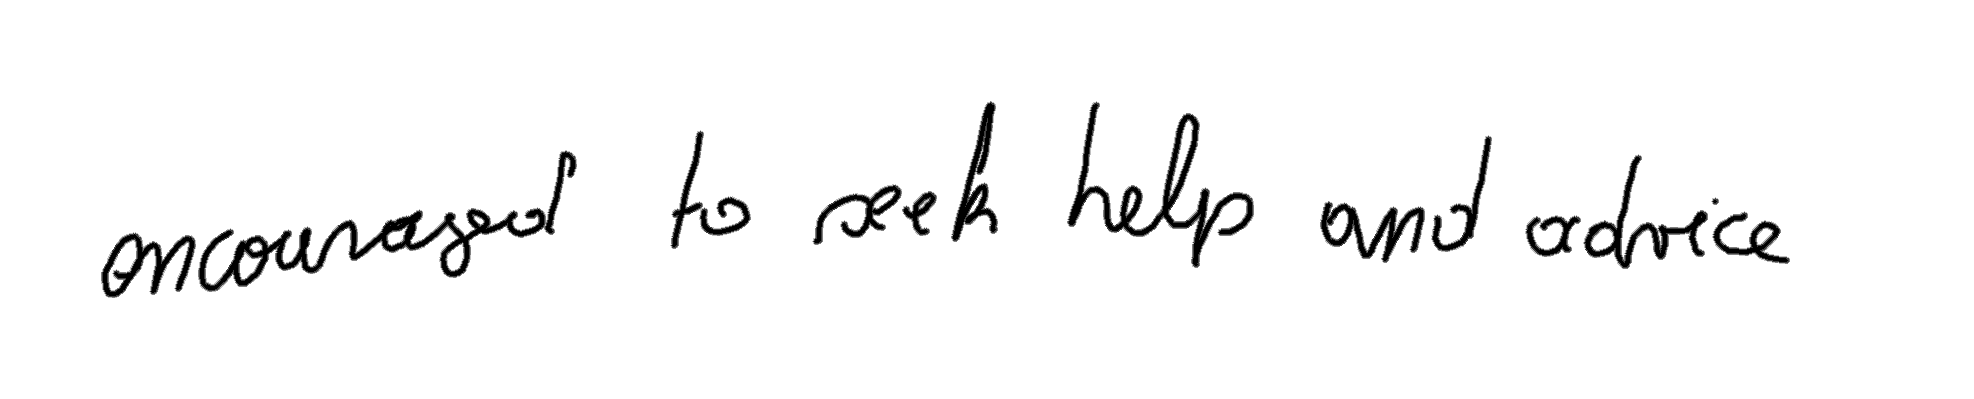 encouraged to seek help and advice